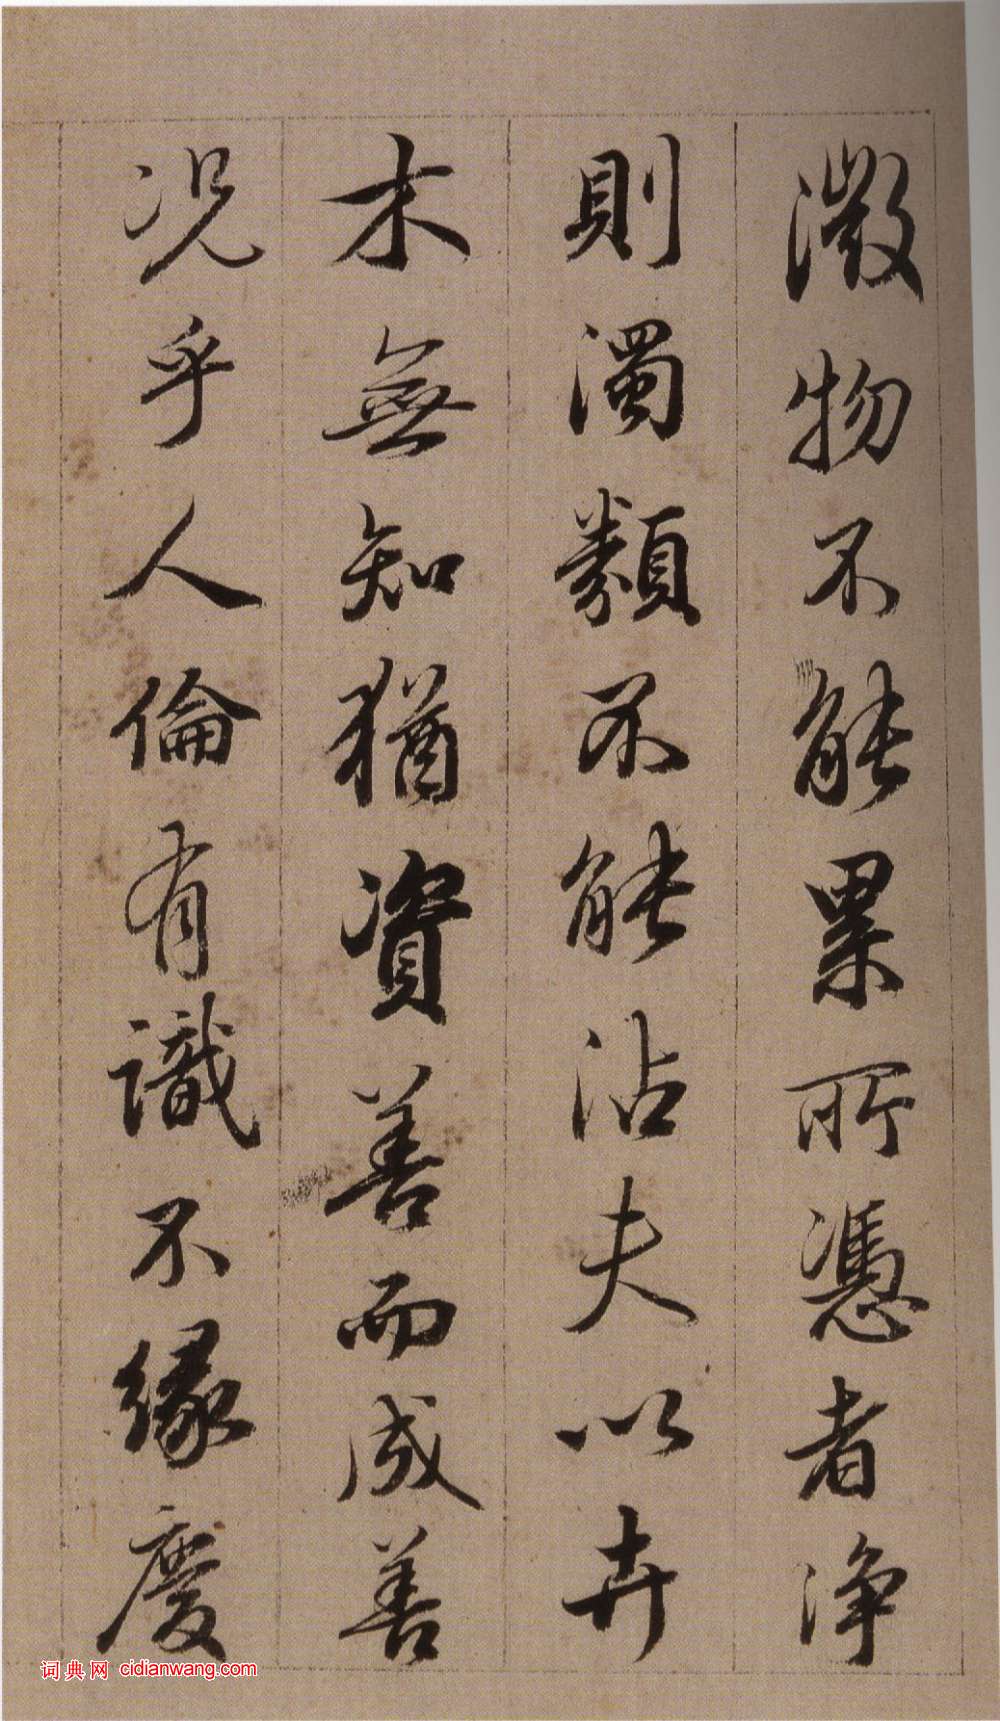 微物不能累所憑者淨
則濁類不能沾夫以卉
木無知猶資善而成善
况乎人倫有識不緣慶
词典网 cidianwang.com